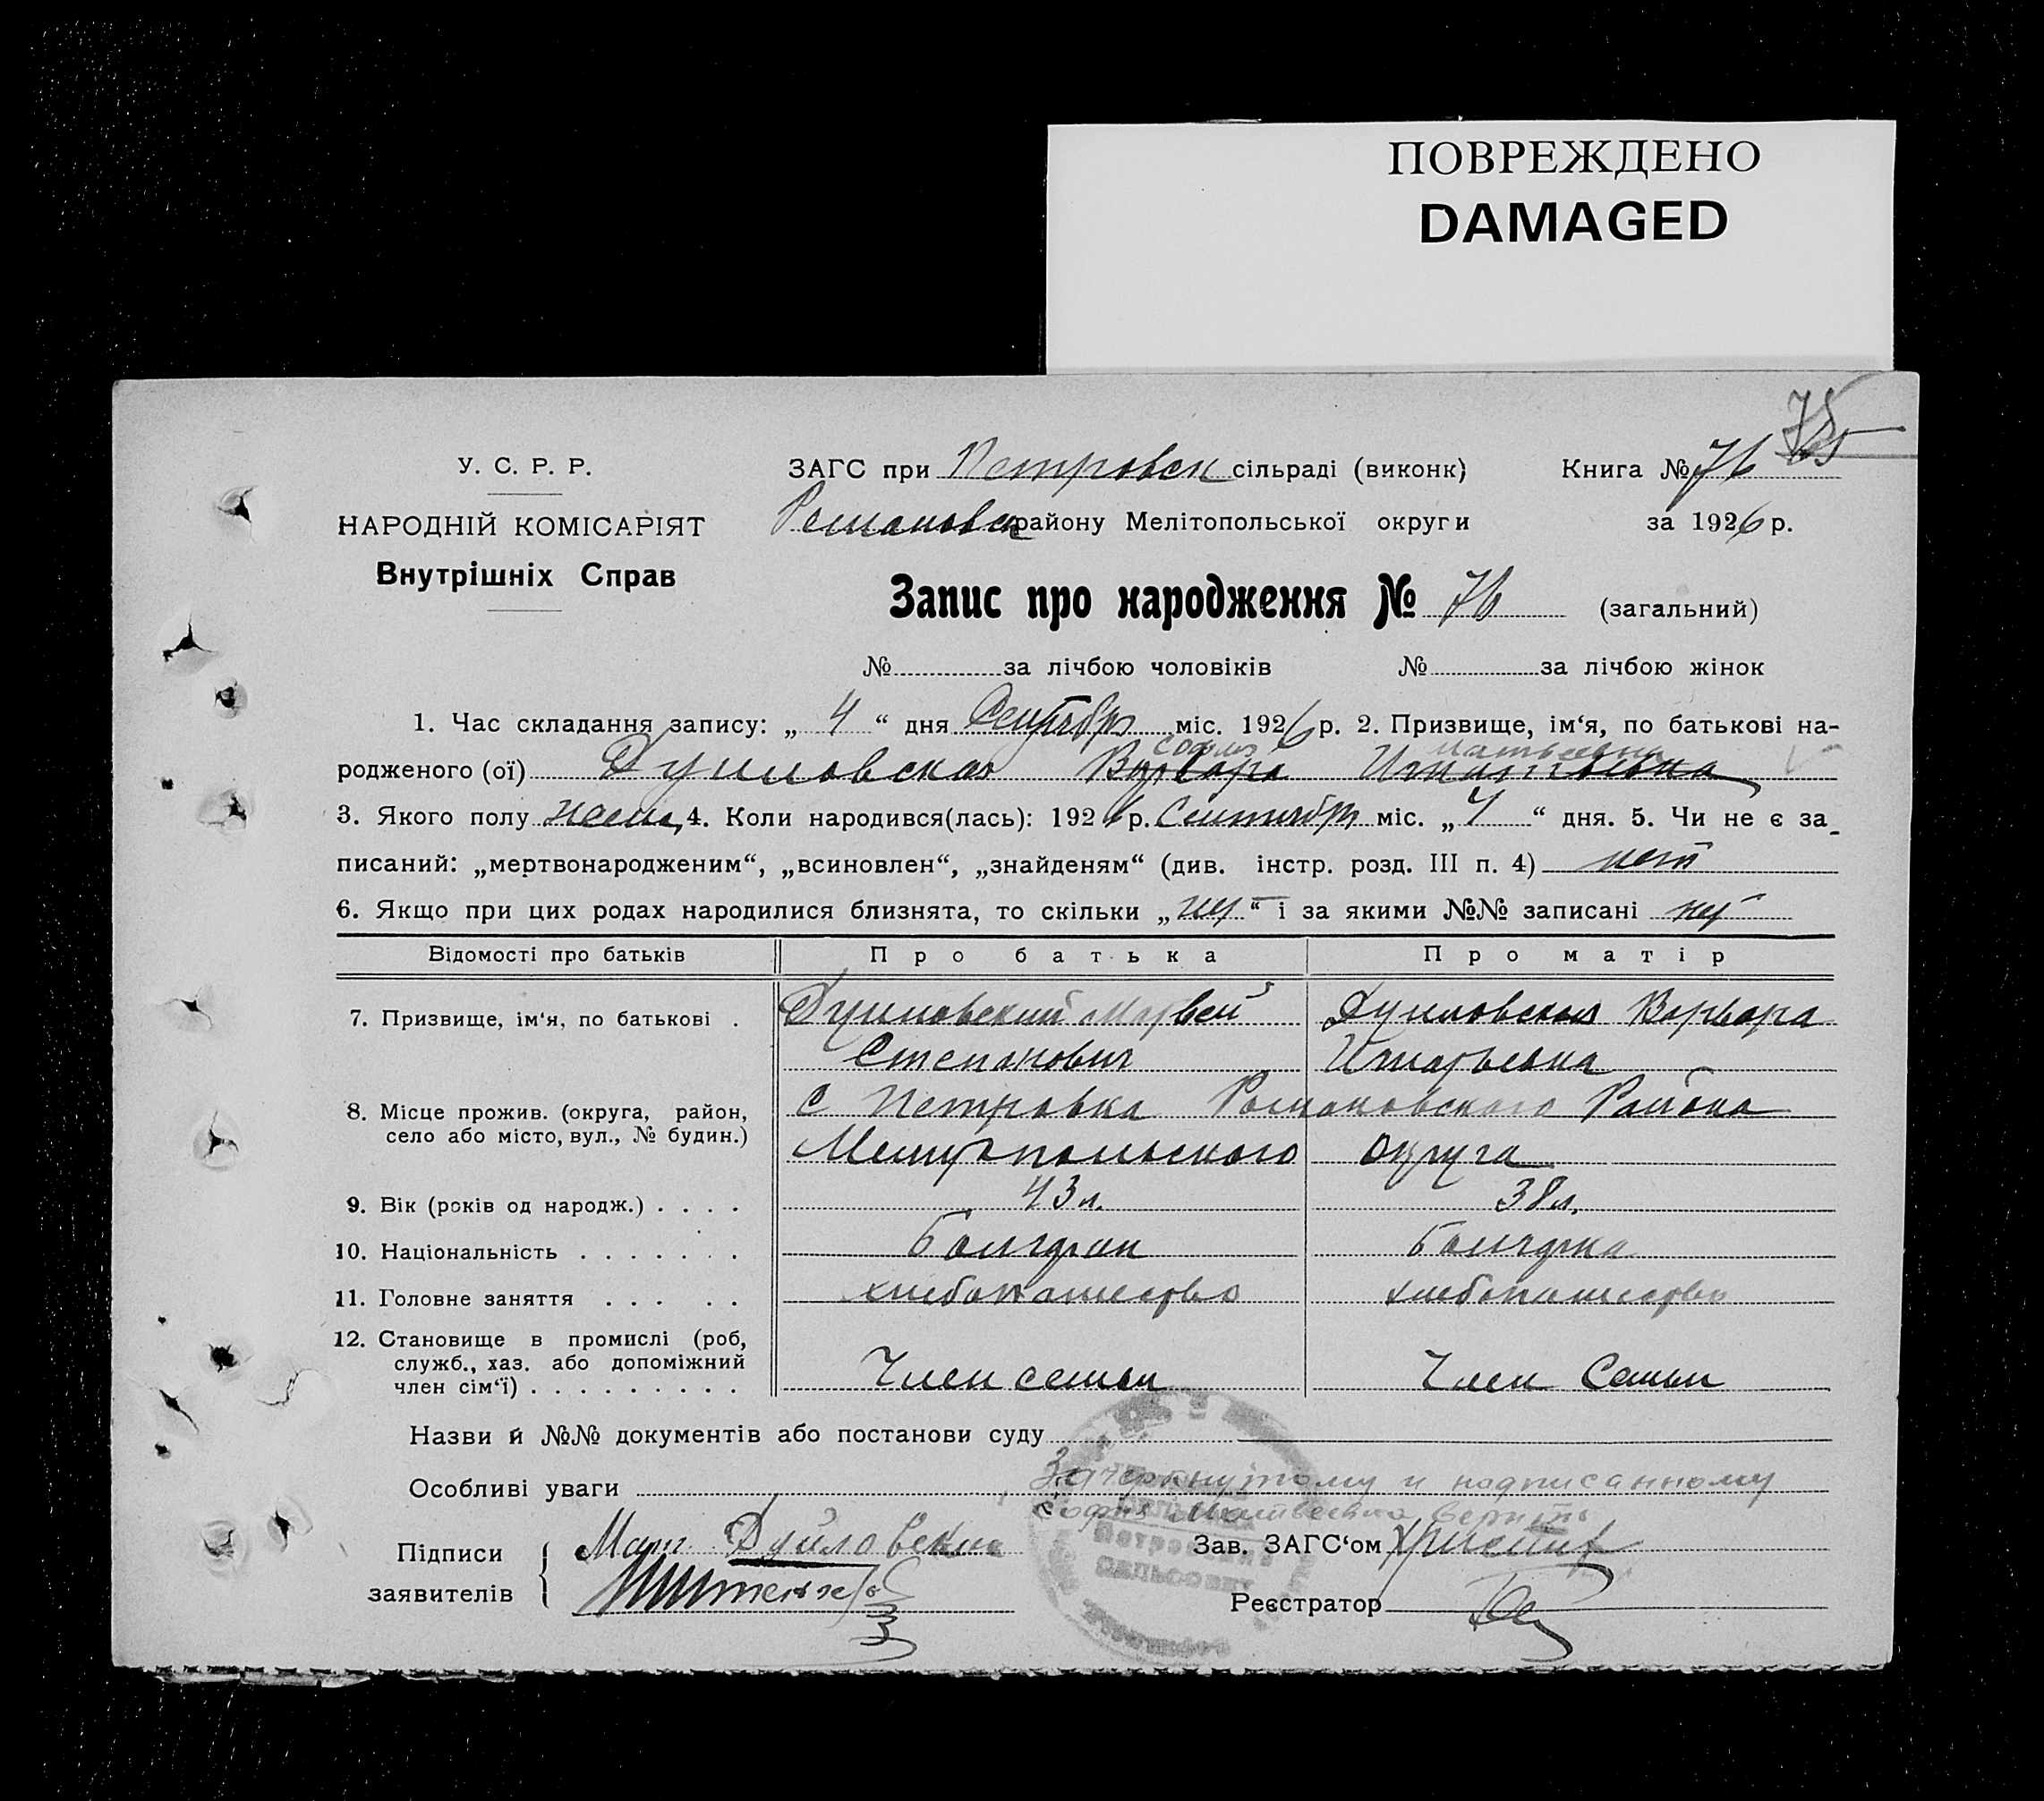 ПОВРЕЖДЕНО
DAMAGED
75
У. С. Р. Р.
ЗАГС при Петровск сільраді (виконк)
Книга № 76
Романовск району Мелітопольської округи
за 1926 р.
НАРОДНІЙ КОМІСАРІЯТ
Внутрішніх Справ
Запис про народження № 76 (загальний)
№ за лічбою чоловіків № за лічбою жінок
1. Час складання запису: „ 4 “ дня Сентябр міс. 1926 р. 2. Призвище, ім‘я, по батькові на-
София Матвеевна
родженого (ої) Дуиловская Варвара Игнатьевна
3. Якого полу женс, 4. Коли народився(лась): 1926 р. Сентябр міс. „ 4 “ дня. 5. Чи не є за_
писаний: „мертвонародженим“, „всиновлен“, „знайденям“ (див. інстр. розд. III п. 4) нет
6. Якщо при цих родах народилися близнята, то скільки „ нет “ і за якими №№ записані нет
Відомості про батьків
Про батька
Про матір
7. Призвище, ім‘я, по батькові .
Дуиловский Матвей
Дуиловская Варвара
Степанович
Игнатьевна
8. Місце прожив. (округа, район,
село або місто, вул., № будин.)
С Петровка Романовского Района
Мелитопольского округа
9. Вік (років од народж.) . . . .
43 л.
38 л.
10. Національність . . . . . . .
Болгарин
Болгарка
11. Головне заняття . . . . .
хлебопашество
хлебопашество
12. Становище в промислі (роб,
служб., хаз. або допоміжний
член сім‘ї) . . . . . . . . .
Член семьи
Член Семьи
Назви й №№ документів або постанови суду
Особливі уваги Зачеркнутому и надписанному
София Матвеевна верить
Підписи
заявителів
Мат. Дуйловский
Зав. ЗАГС‘ом
Реєстратор
Петровский
СЕЛЬСОВЕТ